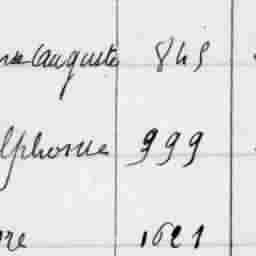 Auguste 845
Alphonse 999
re 1621